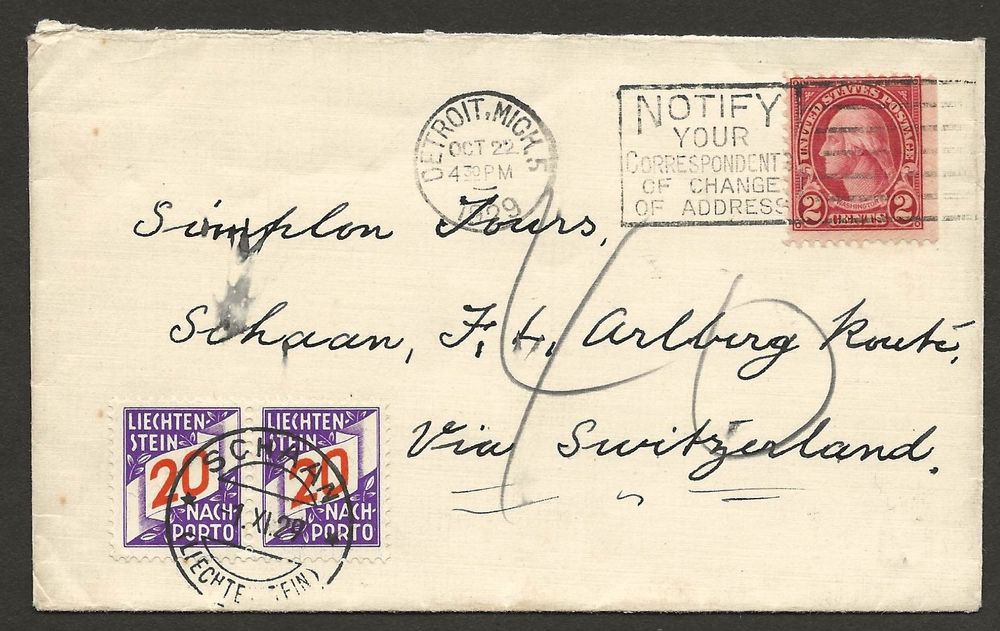 DETROIT, MICH. 5
OCT 22
4 30 PM
1929
NOTIFY
YOUR
CORRESPONDENTS
OF CHANGE
OF ADDRESS
UNITED STATES POSTAGE
WASHINGTON
2 CENTS 2
Simplon Tours,
Schaan, F. L. Arlberg Route,
Via Switzerland.
40
LIECHTEN-
STEIN
20
NACH-
PORTO
LIECHTEN-
STEIN
20
NACH-
PORTO
SCHAAN
XI.29
(LIECHTENSTEIN)